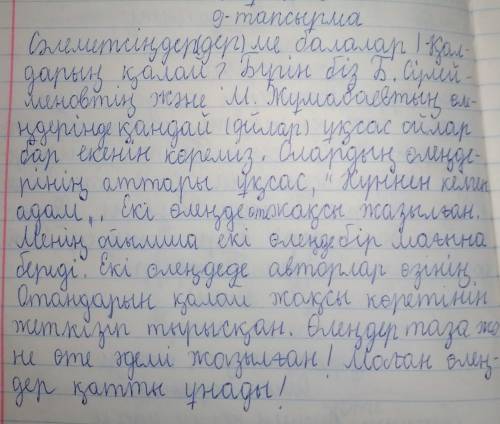 9-тапсырма
Сәлеметсіңдер(дер) ме балалар! Қал-
дарың қалай? Бүгін біз Б. Сүлей-
меновтің және М. Жумабаевтың өле-
ңдерінде қандай (ойлар) ұқсас ойлар
бар екенін көремиз. Олардың өлеңде-
рінің аттары ұқсас, "Күннен келген
адам„. Екі өлеңде жақсы жазылған.
Менің ойымша екі өлеңде бір мағына
береді. Екі өлеңдеде авторлар өзінің
Отандарын қалай жақсы көретінін
жеткізіп тырысқан. Өлеңдер таза жә
не өте әдемі жазылған! Маған өлең-
дер қатты ұнады!